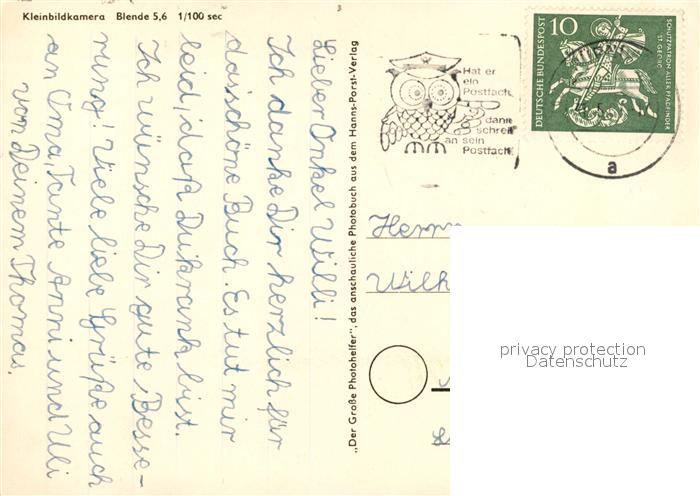 Kleinbildkamera Blende 5,6 1/100 sec
Lieber Onkel Willi!
Ich danke Dir herzlich für
das schöne Buch. Es tut mir
leid, daß Du krank bist.
Ich wünsche Dir gute Besse-
rung! Viele liebe Grüße auch
an Oma, Tante Anni und Uli
von Deinem Thomas.
„Der Große Photohelfer", das anschauliche Photobuch aus dem Hanns-Porst-Verlag
Hat er
ein
Postfach,
dann
schreib
an sein
Postfach
a
10
DEUTSCHE BUNDESPOST
ST. GEORG
SCHUTZPATRON ALLER PFADFINDER
Herrn
Wilh
privacy protection
Datenschutz